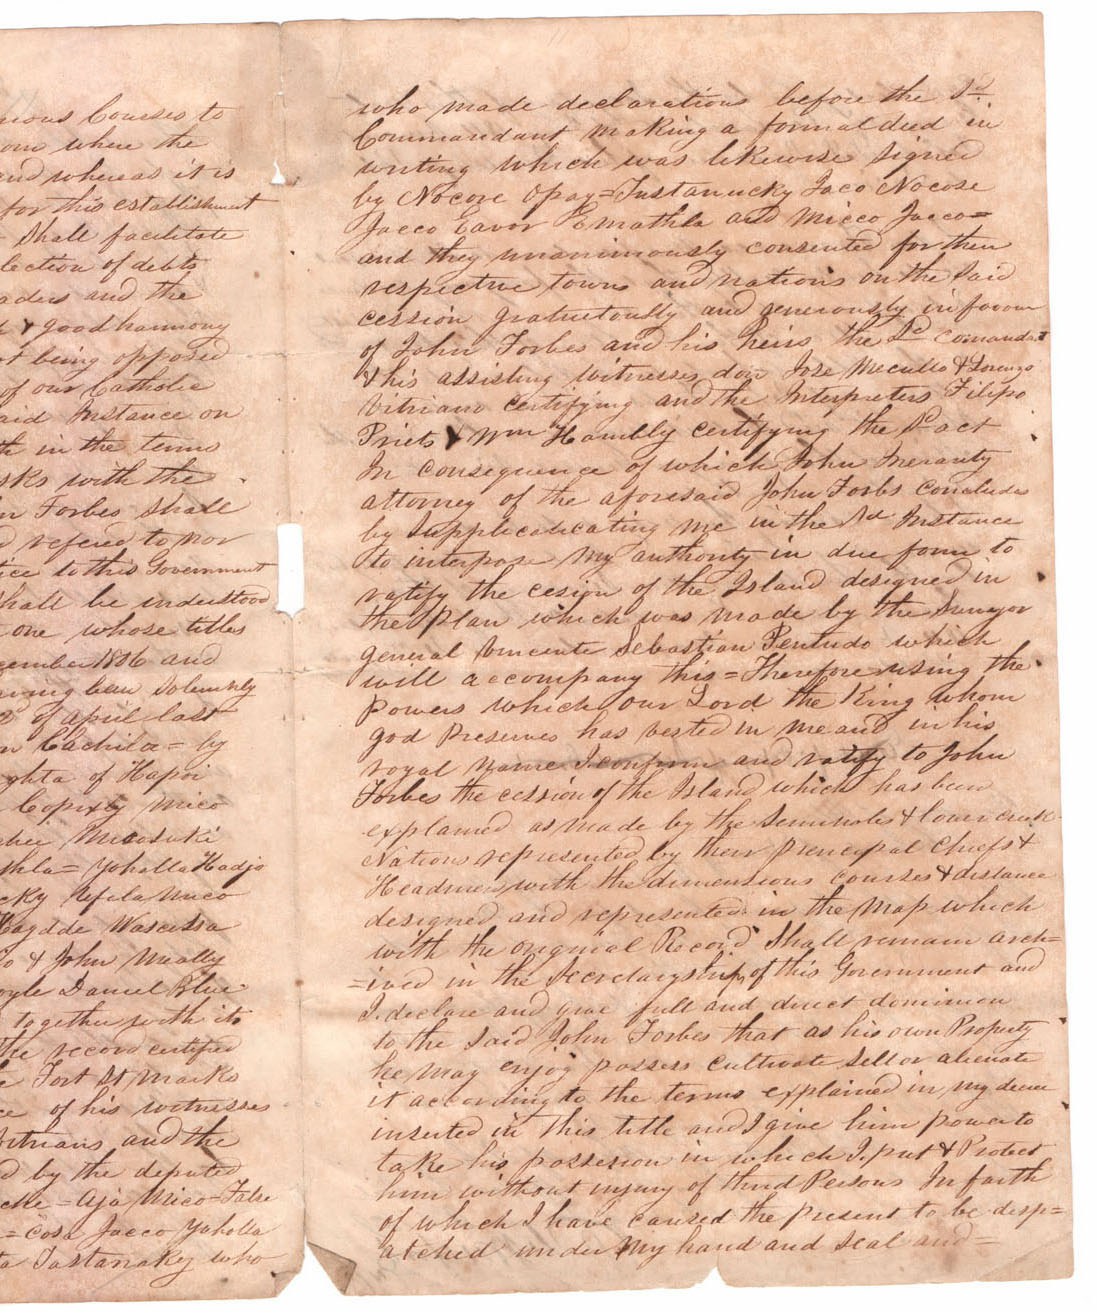 rious Courses to
where the
and whereas it is
for this establishment
Shall facilitate
lection of debts
aders and the
& good harmony
ot being opposed
of our Catholic
aid Instance on
th in the terms
sks with the
n Forbes shall
d refered to nor
tice to this Government
shall be understood
one whose titles
cember 1806 and
aving been Solemnly
2d of april last
n Cachila = by
ghta of Hapoi
Copixy Mico
Micosuki
thla = Yoholla Hadjo
cky Apila Mico
Hagdde Wascissa
o & John Meally
oyle Daniel Blue
together with its
the record certified
e Fort St Marks
ce of his witnesses
Vitrians and the
d by the deputed
che = Aja Mico = False
= Cosa Jacco Yoholla
a Tastanaky who
who made declarations before the Sd
Commandant making a formal deed in
writing which was likewise signed
by Nocore Opay = Tustanucky Jaco Nocose
Jacco Eavor Emathla and Micco Jacco =
and they unanimously consented for their
respective towns and nations on the Said
cession gratuitoully and generously in favour
of John Forbes and his heirs the Sd Comandat
& his assisting witnesses don Jose Mecullo & Lorenzo
Vitriano certifying and the Interpreters Filipo
Prieto & Wm Hambly certifying the Sd act
In consequence of which John Inerarity
attorney of the aforesaid John Forbs concludes
by Supplicadicating me in the Sd Instance
to interpose my authority in due form to
ratify the cesion of the Island designed in
the Plan which was made by the Surveyor
general Vincente Sebastian Pentudo which
will accompany this = Therefore using the
Powers which our Lord the King whom
god Preserves has vested in me and in his
royal name I confirm and ratify to John
Forbes the cession of the Island which has been
explained as made by the Seminoles & lower creek
Nations represented by their principal Chiefs &
Headmen with the dimensions courses & distance
designed and represented in the map which
with the original Record Shall remain arch=
=ived in the Secretaryship of this Government and
I declare and give full and direct dominion
to the Said John Forbes that as his own Property
he may enjoy possess cultivate sell or alienate
it according to the terms explained in my decree
inserted in this title and I give him power to
take his possesion in which I put & Protect
him without injury of third Persons In faith
of which I have caused the present to be disp=
atched under my hand and seal and =